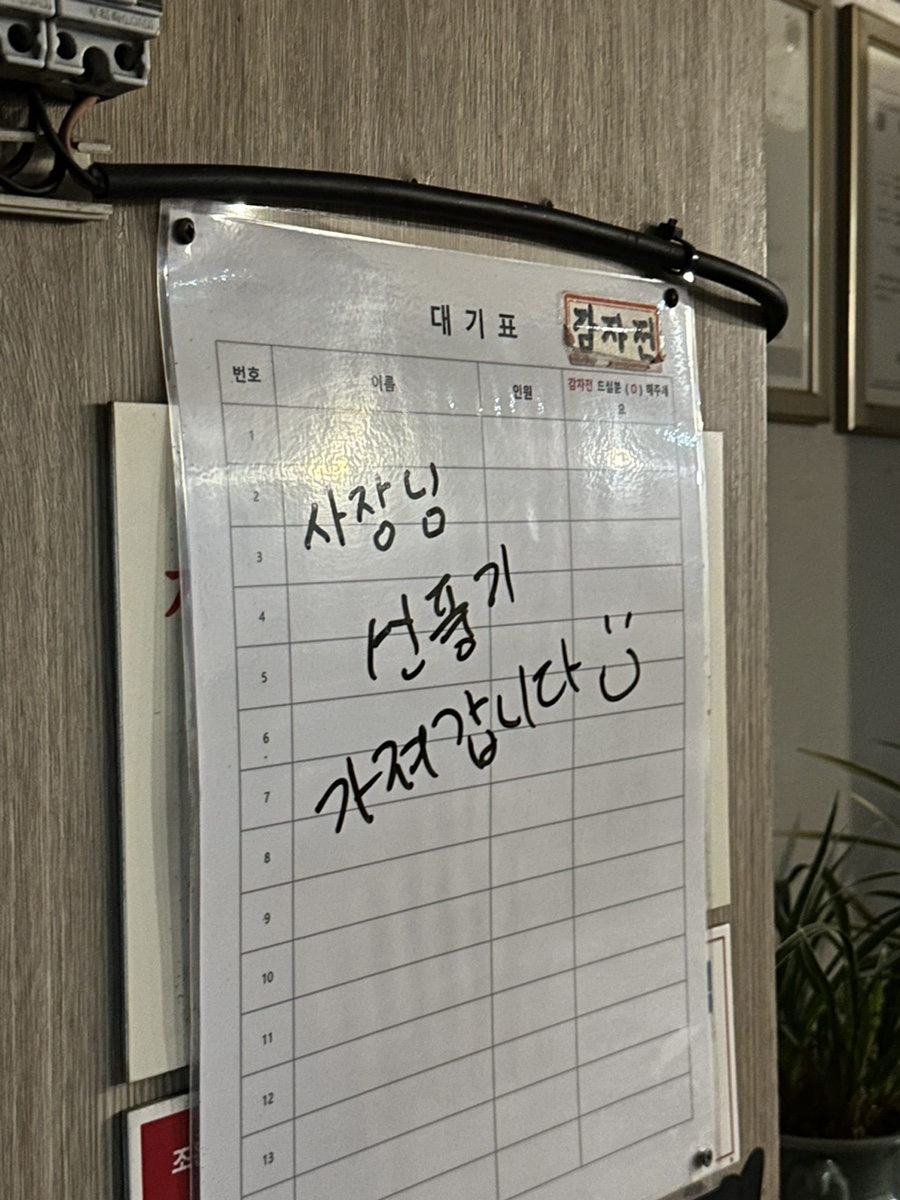 대기표 감자전
번호 이름 인원 감자전 드실분 (O) 해주세
요
1
2
사장님
3
4
선풍기
5
6
가져갑니다 :)
7
8
9
10
11
12
13